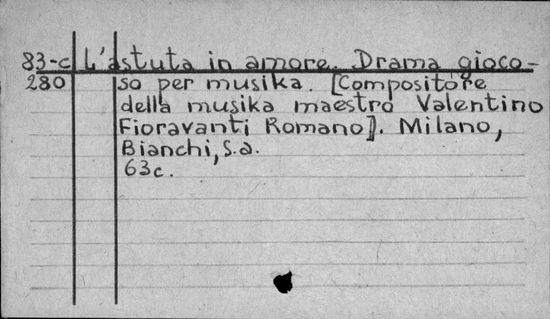 83-c L'astuta in amore. Drama gioco-
280 so per musika. [Compositore
della musika maestro Valentino
Fioravanti Romano]. Milano,
Bianchi, S.a.
63c.